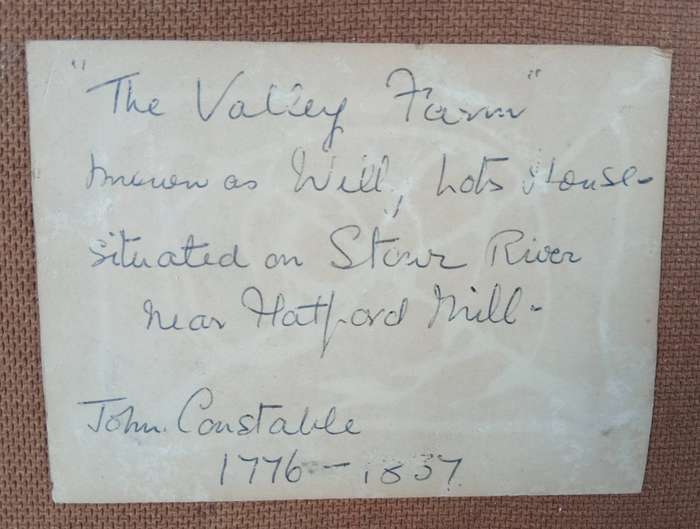 "The Valley Farm"
known as Will, Lots House-
situated on Stour River
near Hatford Mill-
John. Constable
1776 - 1837